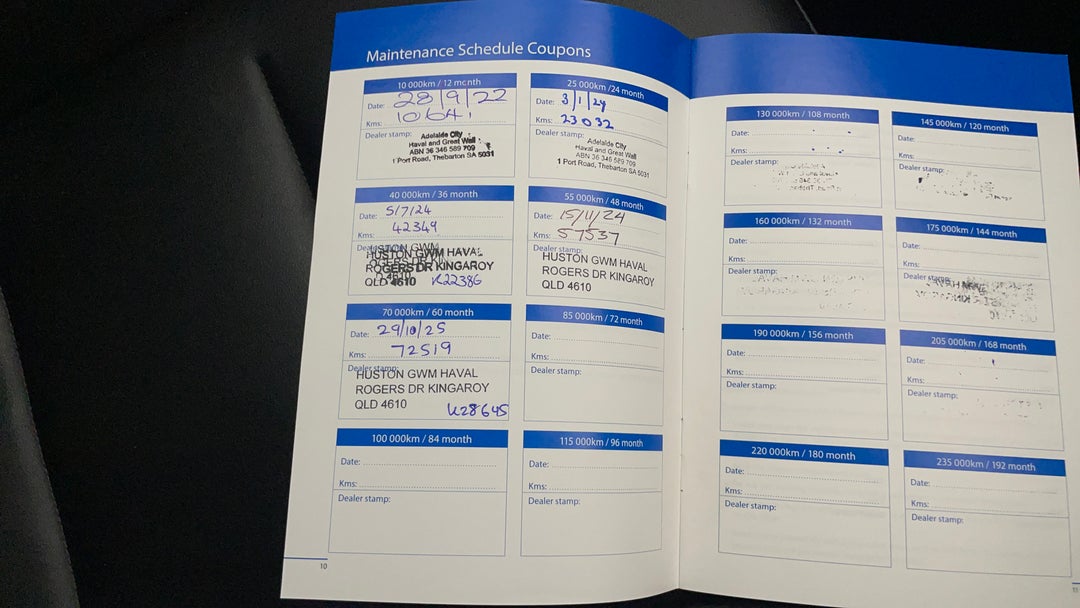 Maintenance Schedule Coupons
10 000km / 12 month
Date: 28/9/22
Kms: 10641
Dealer stamp:
Adelaide City
Haval and Great Wall
ABN 36 346 589 709
1 Port Road, Thebarton SA 5031
25 000km /24 month
Date: 3/1/24
Kms: 23032
Dealer stamp:
Adelaide City
Haval and Great Wall
ABN 36 346 589 709
1 Port Road, Thebarton SA 5031
40 000km / 36 month
Date: 5/7/24
Kms: 42349
HUSTON GWM HAVAL
ROGERS DR KINGAROY
QLD 4610 K22386
55 000km / 48 month
Date: 15/11/24
Kms: 57537
Dealer stamp:
HUSTON GWM HAVAL
ROGERS DR KINGAROY
QLD 4610
70 000km / 60 month
Date: 29/10/25
Kms: 72519
Dealer stamp:
HUSTON GWM HAVAL
ROGERS DR KINGAROY
QLD 4610 K28645
85 000km / 72 month
Date:
Kms:
Dealer stamp:
100 000km / 84 month
Date:
Kms:
Dealer stamp:
115 000km / 96 month
Date:
Kms:
Dealer stamp:
10
130 000km / 108 month
Date:
Kms:
Dealer stamp:
145 000km / 120 month
Date:
Kms:
Dealer stamp:
160 000km / 132 month
Date:
Kms:
Dealer stamp:
175 000km / 144 month
Date:
Kms:
Dealer stamp:
190 000km / 156 month
Date:
Kms:
Dealer stamp:
205 000km / 168 month
Date:
Kms:
Dealer stamp:
220 000km / 180 month
Date:
Kms:
Dealer stamp:
235 000km / 192 month
Date:
Kms:
Dealer stamp:
11